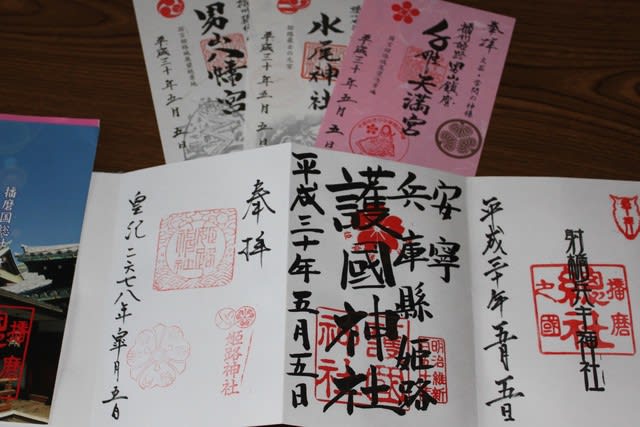 奉拝
播州姫路男山鎮座
文芸・学問の神様
千姫天満宮
平成三十年五月五日
水尾神社
平成三十年五月五日
男山八幡宮
平成三十年五月五日
播磨国総
射楯兵主神社
播磨
総社
之國
平成三十年五月五日
安寧
兵庫縣姫路
護國神社
明治維新
平成三十年五月五日
奉拝
姫路神社
皇紀二六七八年皐月五日